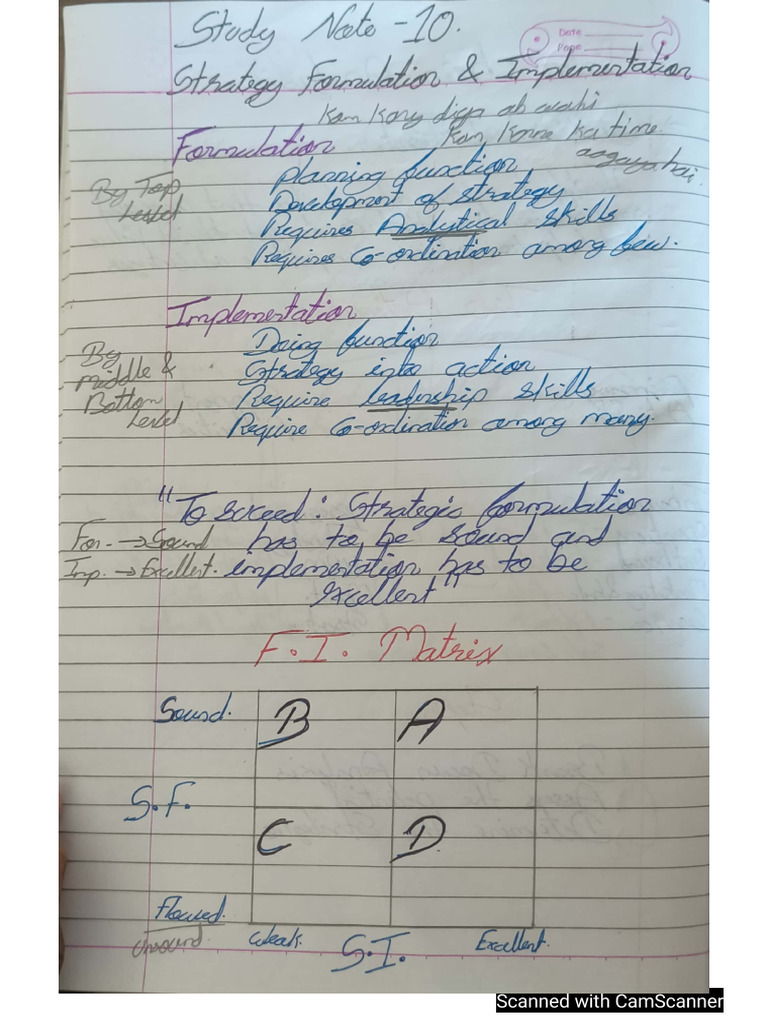 Study Note - 10.
Date
Page
Strategy Formulation & Implementation
kam kar
Kam karne ka time
aagaya hai.
Formulation
By Top Level
Planning function
Development of strategy
Requires Analytical skills
Requires Co-ordination among few.
Implementation
By Middle & Bottom Level
Doing function
Strategy into action
Require leadership skills
Require Co-ordination among many.
"To succeed: Strategic formulation
For. → Sound has to be sound and
Imp. → Excellent. implementation has to be
excellent"
F.I. Matrix
Sound. B A
S.F.
C D
Flawed.
Unsound. Weak. Excellent.
S.I.
Scanned with CamScanner